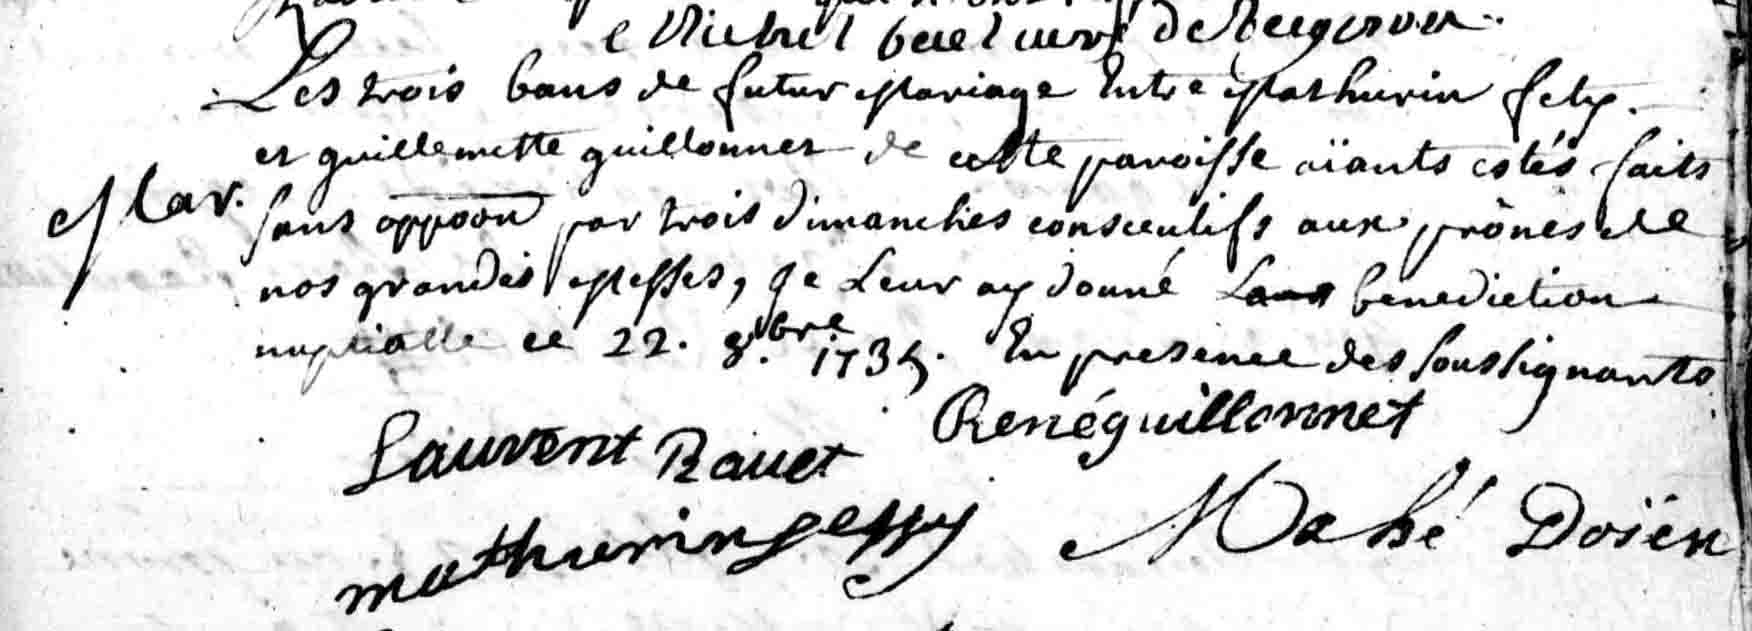 Michel
Les trois bans de futur Mariage Entre Mathurin fely.
et guillemette guillonnet de cette paroisse aïants estés faits
Mar.
sans oppoon par trois dimanches consecutifs aux prônes de
nos grandes Messes, Je Leur ay donné La benediction
nuptialle ce 22. 8.bre 1735. En presence des soussignants
Renéguillonnet
Laurent Rauet
Mahé Doïen
mathurin